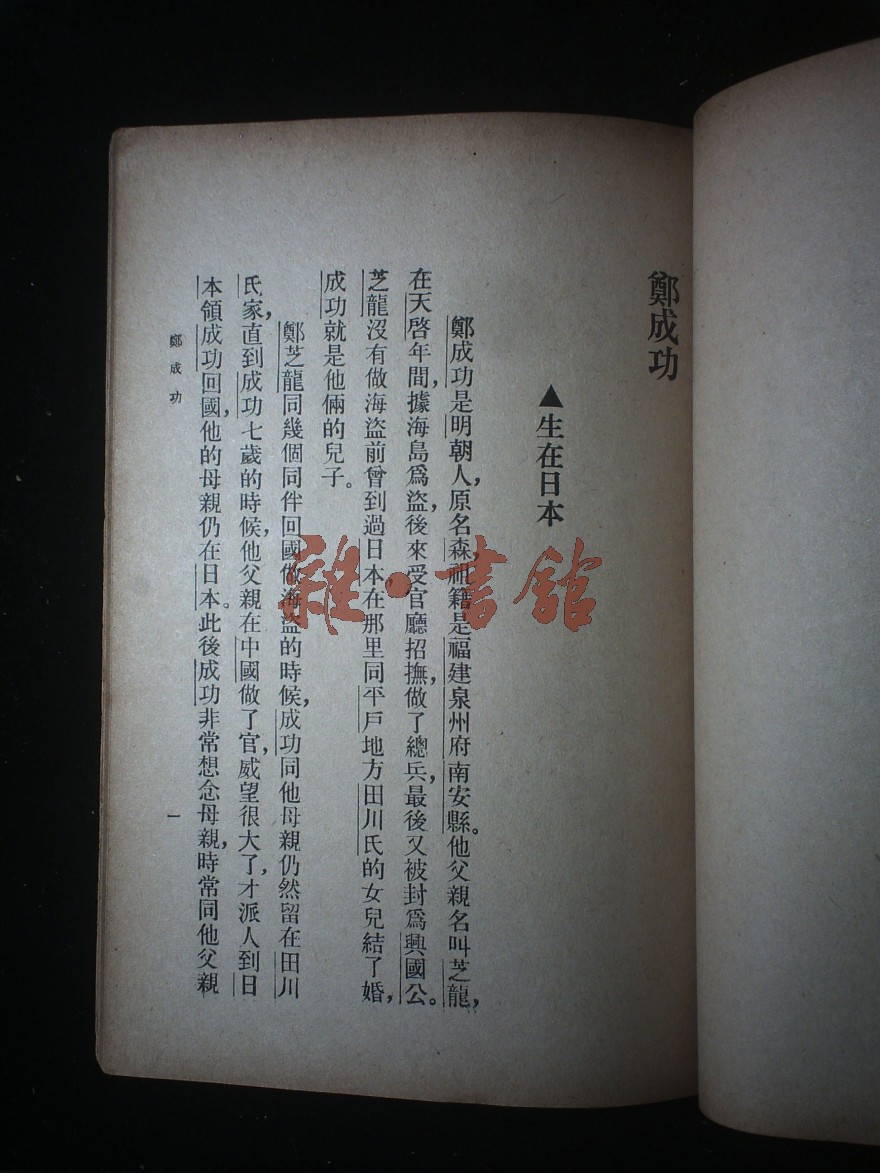 鄭成功
▲生在日本
鄭成功是明朝人，原名森，祖籍是福建泉州府南安縣。他父親名叫芝龍，
在天啓年間，據海島爲盜，後來受官廳招撫，做了總兵，最後又被封爲興國公。
芝龍沒有做海盜前曾到過日本，在那里同平戶地方田川氏的女兒結了婚，
成功就是他倆的兒子。
鄭芝龍同幾個同伴回國做海盜的時候，成功同他母親仍然留在田川
氏家，直到成功七歲的時候，他父親在中國做了官，威望很大了，才派人到日
本領成功回國，他的母親仍在日本。此後成功非常想念母親，時常同他父親
鄭成功
一
雜·書館